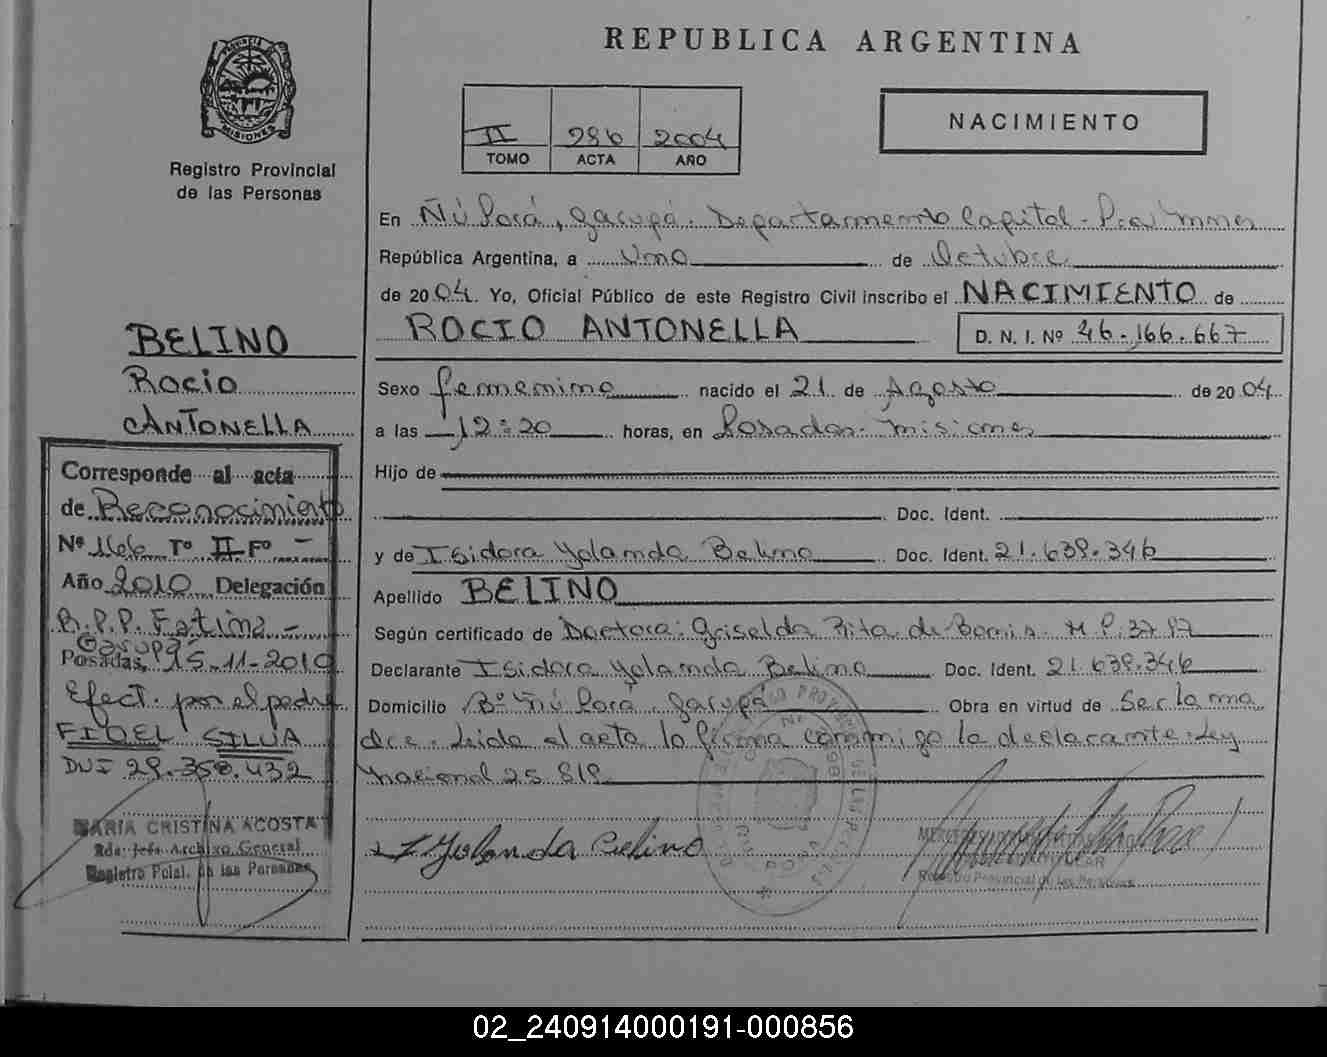 REPUBLICA ARGENTINA
PROVINCIA DE
MISIONES
Registro Provincial
de las Personas
II 286 2004
TOMO ACTA AÑO
NACIMIENTO
En Ñú Porá, Garupá. Departamento Capital - Mnes
República Argentina, a Uno de Octubre
de 2004. Yo, Oficial Público de este Registro Civil inscribo el NACIMIENTO de
ROCIO ANTONELLA D. N. I. Nº 46.166.667
Sexo femenino nacido el 21 de Agosto de 2004
a las 12:20 horas, en Posadas. Misiones
Hijo de
Doc. Ident.
y de Isidora Yolanda Belino Doc. Ident. 21.639.346
Apellido BELINO
Según certificado de Doctora: Griselda Rita de M.P. 3797
Declarante Isidora Yolanda Belino Doc. Ident. 21.639.346
Domicilio Bº Ñú Porá, Garupá Obra en virtud de Ser la ma
dre. Leida el acta la firma conmigo la declarante. Ley
Nacional 25.818.
I Yolanda Belino
Registro Provincial de las Personas
BELINO
Rocio
ANTONELLA
Corresponde al acta
de Reconocimiento
Nº 166 Tº II Fº -
Año 2010 Delegación
R.P.P. Fatima -
Garupá
Posadas, 15-11-2010
Efect. por el padre
FIDEL SILVA
DNI 29.358.432
MARIA CRISTINA ACOSTA
Rda: Jefa Archivo General
Registro Pcial. de las Personas
02_240914000191-000856